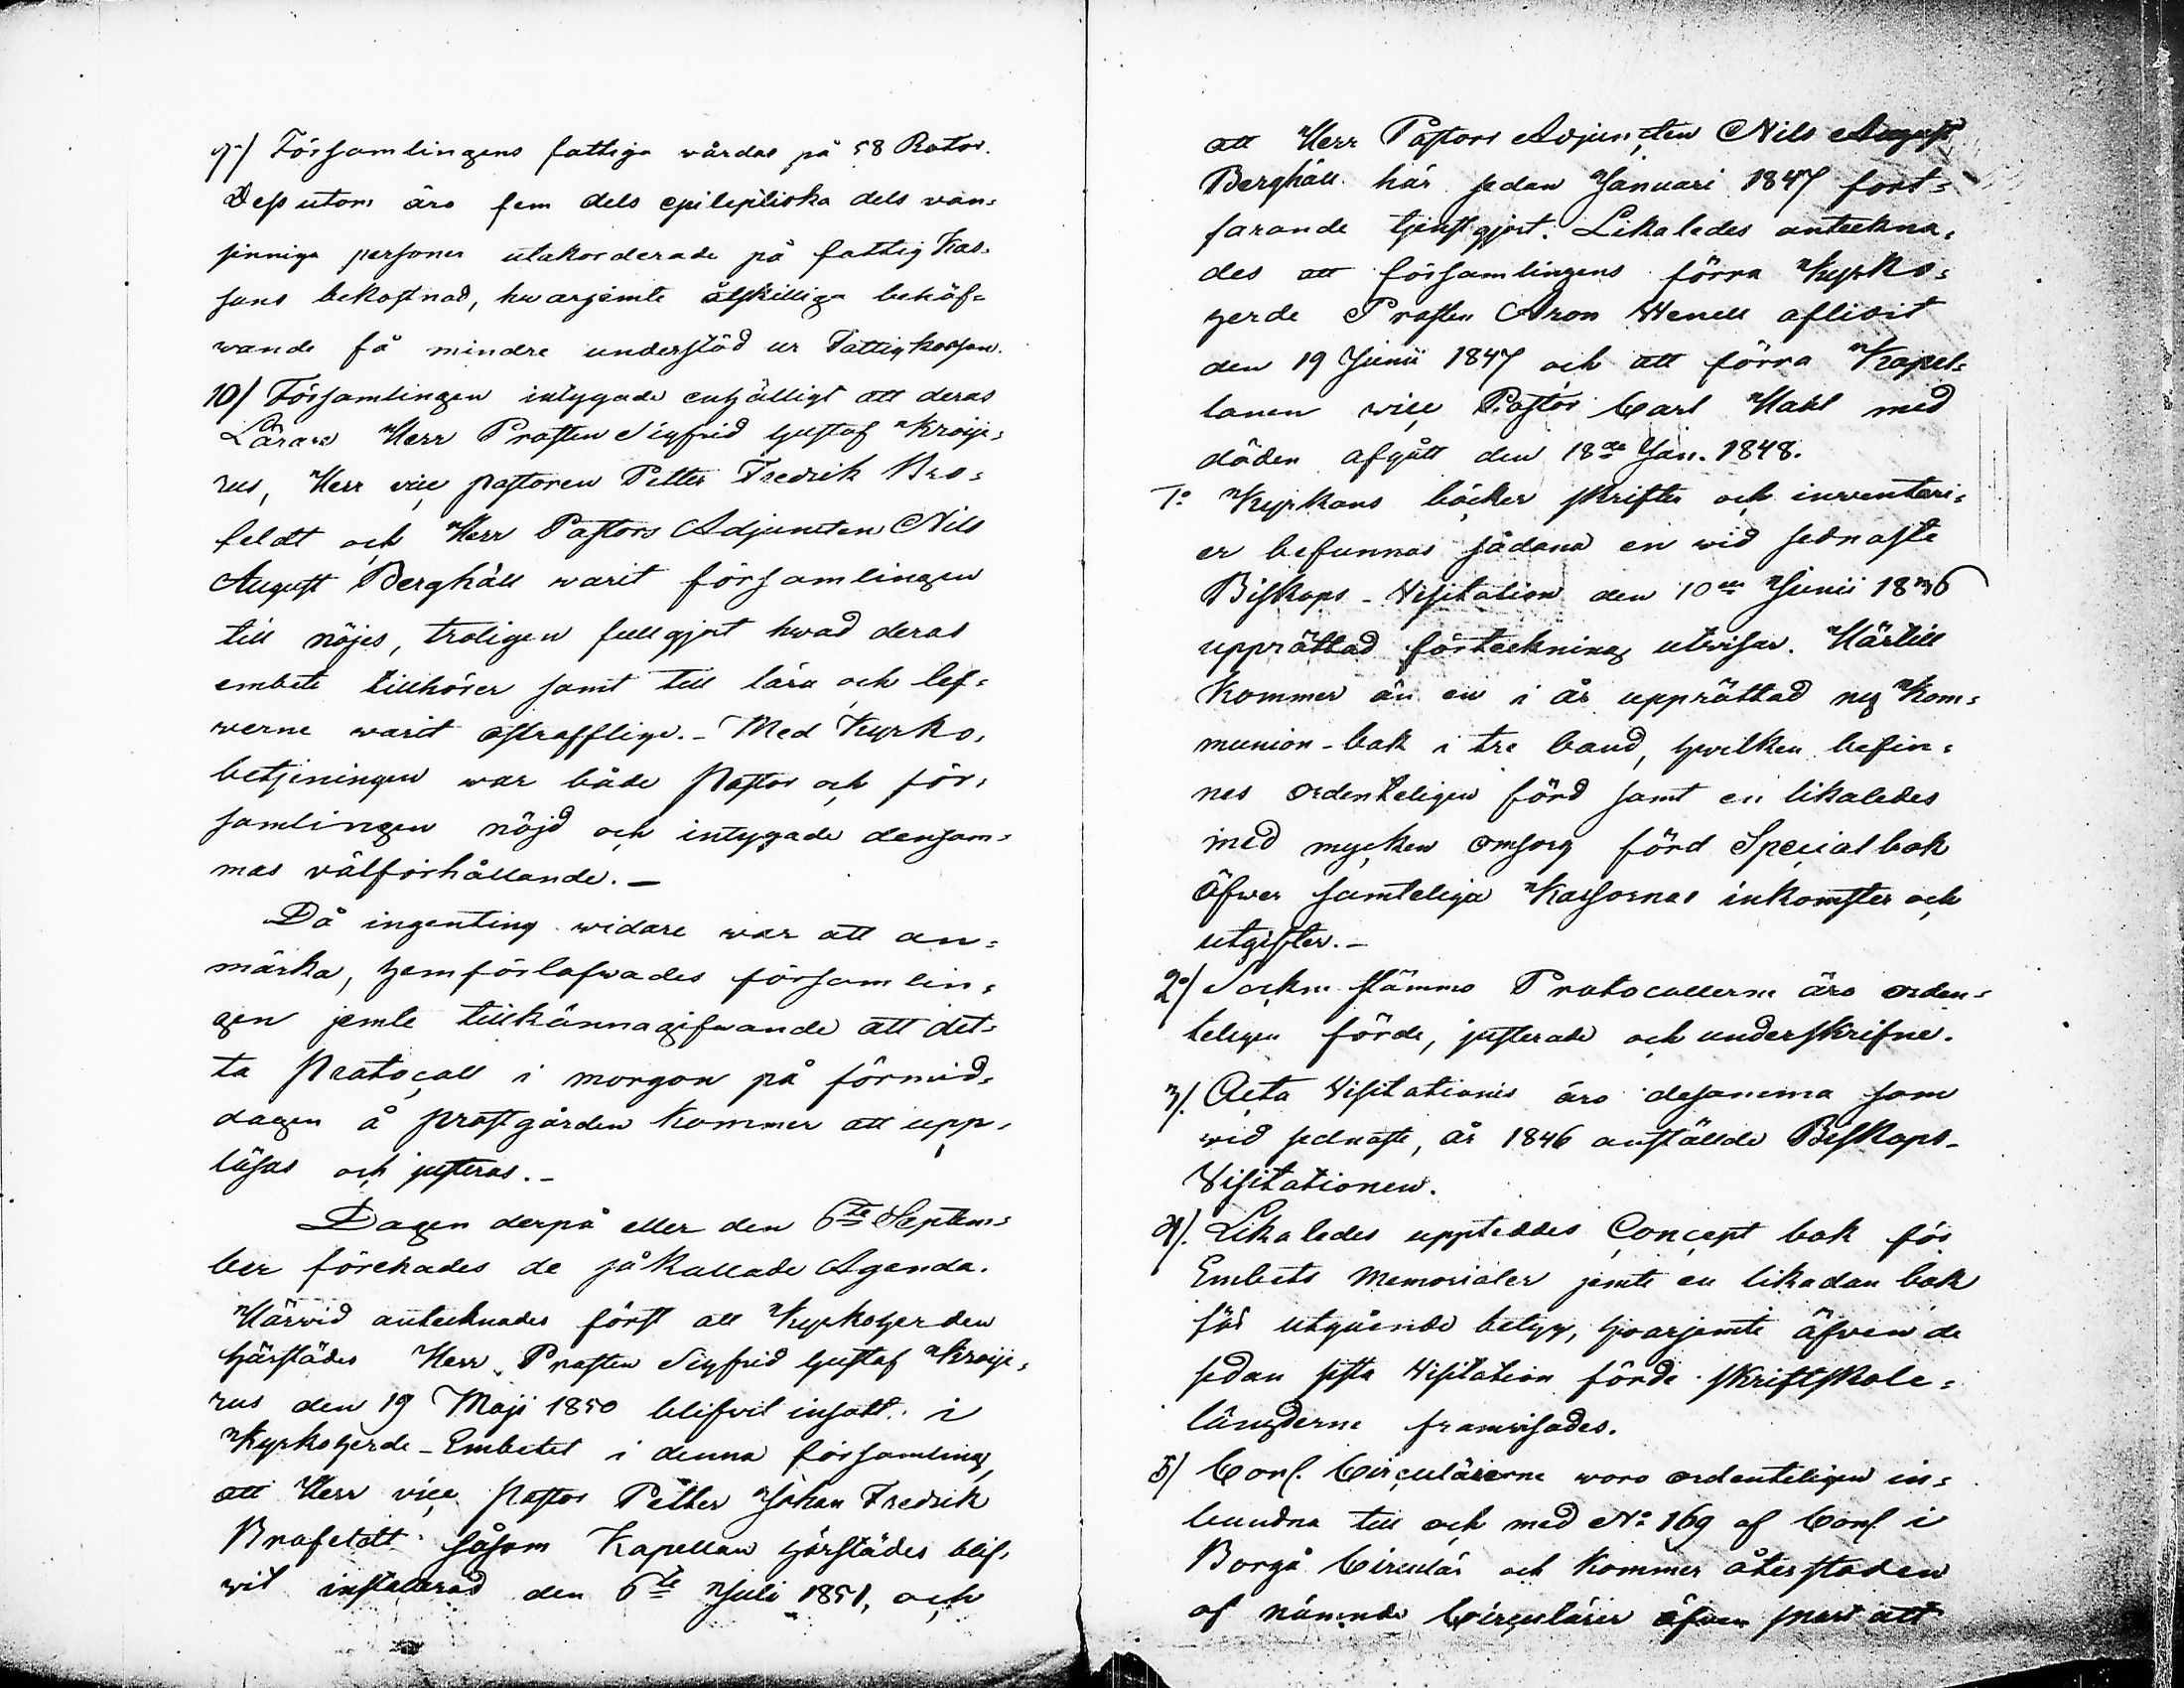 9/ Församlingens fattiga wårdas på 58 Rotor.
Dessutom äro fem dels epileptiska dels van-
sinniga personer utakorderade på fattig Kas-
sans bekostnad, hwarjemte åtskilliga behöf-
wande få mindre understöd ur Fattigkassan.
10/ Församlingen intygade enhälligt att deras
Lärare Herr Prosten Sigfrid Gustaf Kroije-
rus, Herr vice pastoren Petter Fredrik Bro-
feldt och Herr Pastors Adjuncten Nils
August Berghäll warit församlingen
till nöjes, troligen fullgjort hwad deras
embete tillhörer samt till lära och lef-
werne warit ostrafflige. - Med Kyrko-
betjeningen war både Pastor och för-
samlingen nöjd och intygade densam-
mas välförhållande. -
Då ingenting widare war att an-
märka, hemförlofwades församlin-
gen jemte tillkännagifwande att det-
ta Protocoll i morgon på förmid-
dagen å prostgården kommer att upp-
läsas och justeras. -
Dagen derpå eller den 6te Septem-
ber förehades de så kallade Agenda.
Härwid antecknades först att Kyrkoherden
härstädes Herr Prosten Sigfrid Gustaf Kroije-
rus den 19 Maji 1850 blifwit insatt i
Kyrkoherde-Embetet i denna församling,
att Herr vice Pastor Petter Johan Fredrik
Brofeldt såsom Kapellan härstädes blif-
wit installerad den 6te Juli 1851, och
att Herr Pastors Adjuncten Nils August
Berghäll här sedan Januari 1847 fort-
farande tjenstgjort. Likaledes anteckna-
des att församlingens förra Kyrko-
herde Prosten Aron Henell aflidit
den 19 Junii 1847 och att förra Kapel-
lanen vice Pastor Carl Hahl med
döden afgått den 18de Jan. 1848.
1o Kyrkans böcker skrifter och inventari-
er befunnos sådana en wid sednaste
Biskops-Visitation den 10de Junii 1836
upprättad förteckning utvisar. Härtill
kommer än en i år upprättad ny Kom-
munion-bok i tre band, hwilken befin-
nes ordenteligen förd samt en likaledes
med mycken omsorg förd Special bok
öfwer samteliga Kassornas inkomster och
utgifter. -
2o/ Sockne stämmo Protocollerne äro orden-
teligen förde, justerade och underskrifne.
3/. Acta Visitationis äro desamma som
wid sednaste, år 1846 anställde Biskops-
Visitationen.
4/. Likaledes uppteddes Concept bok för
Embets Memorialer jemte en likadan bok
för utgående betyg, hvarjemte äfwen de
sedan sista Visitation förde skriftskole-
längderne framwisades.
5/ Cons. Circulärerne woro ordenteligen in-
bundna till och med No 169 af Cons. i
Borgå Circulär och kommer återstoden
af nämnde Circulärer äfwen snart att